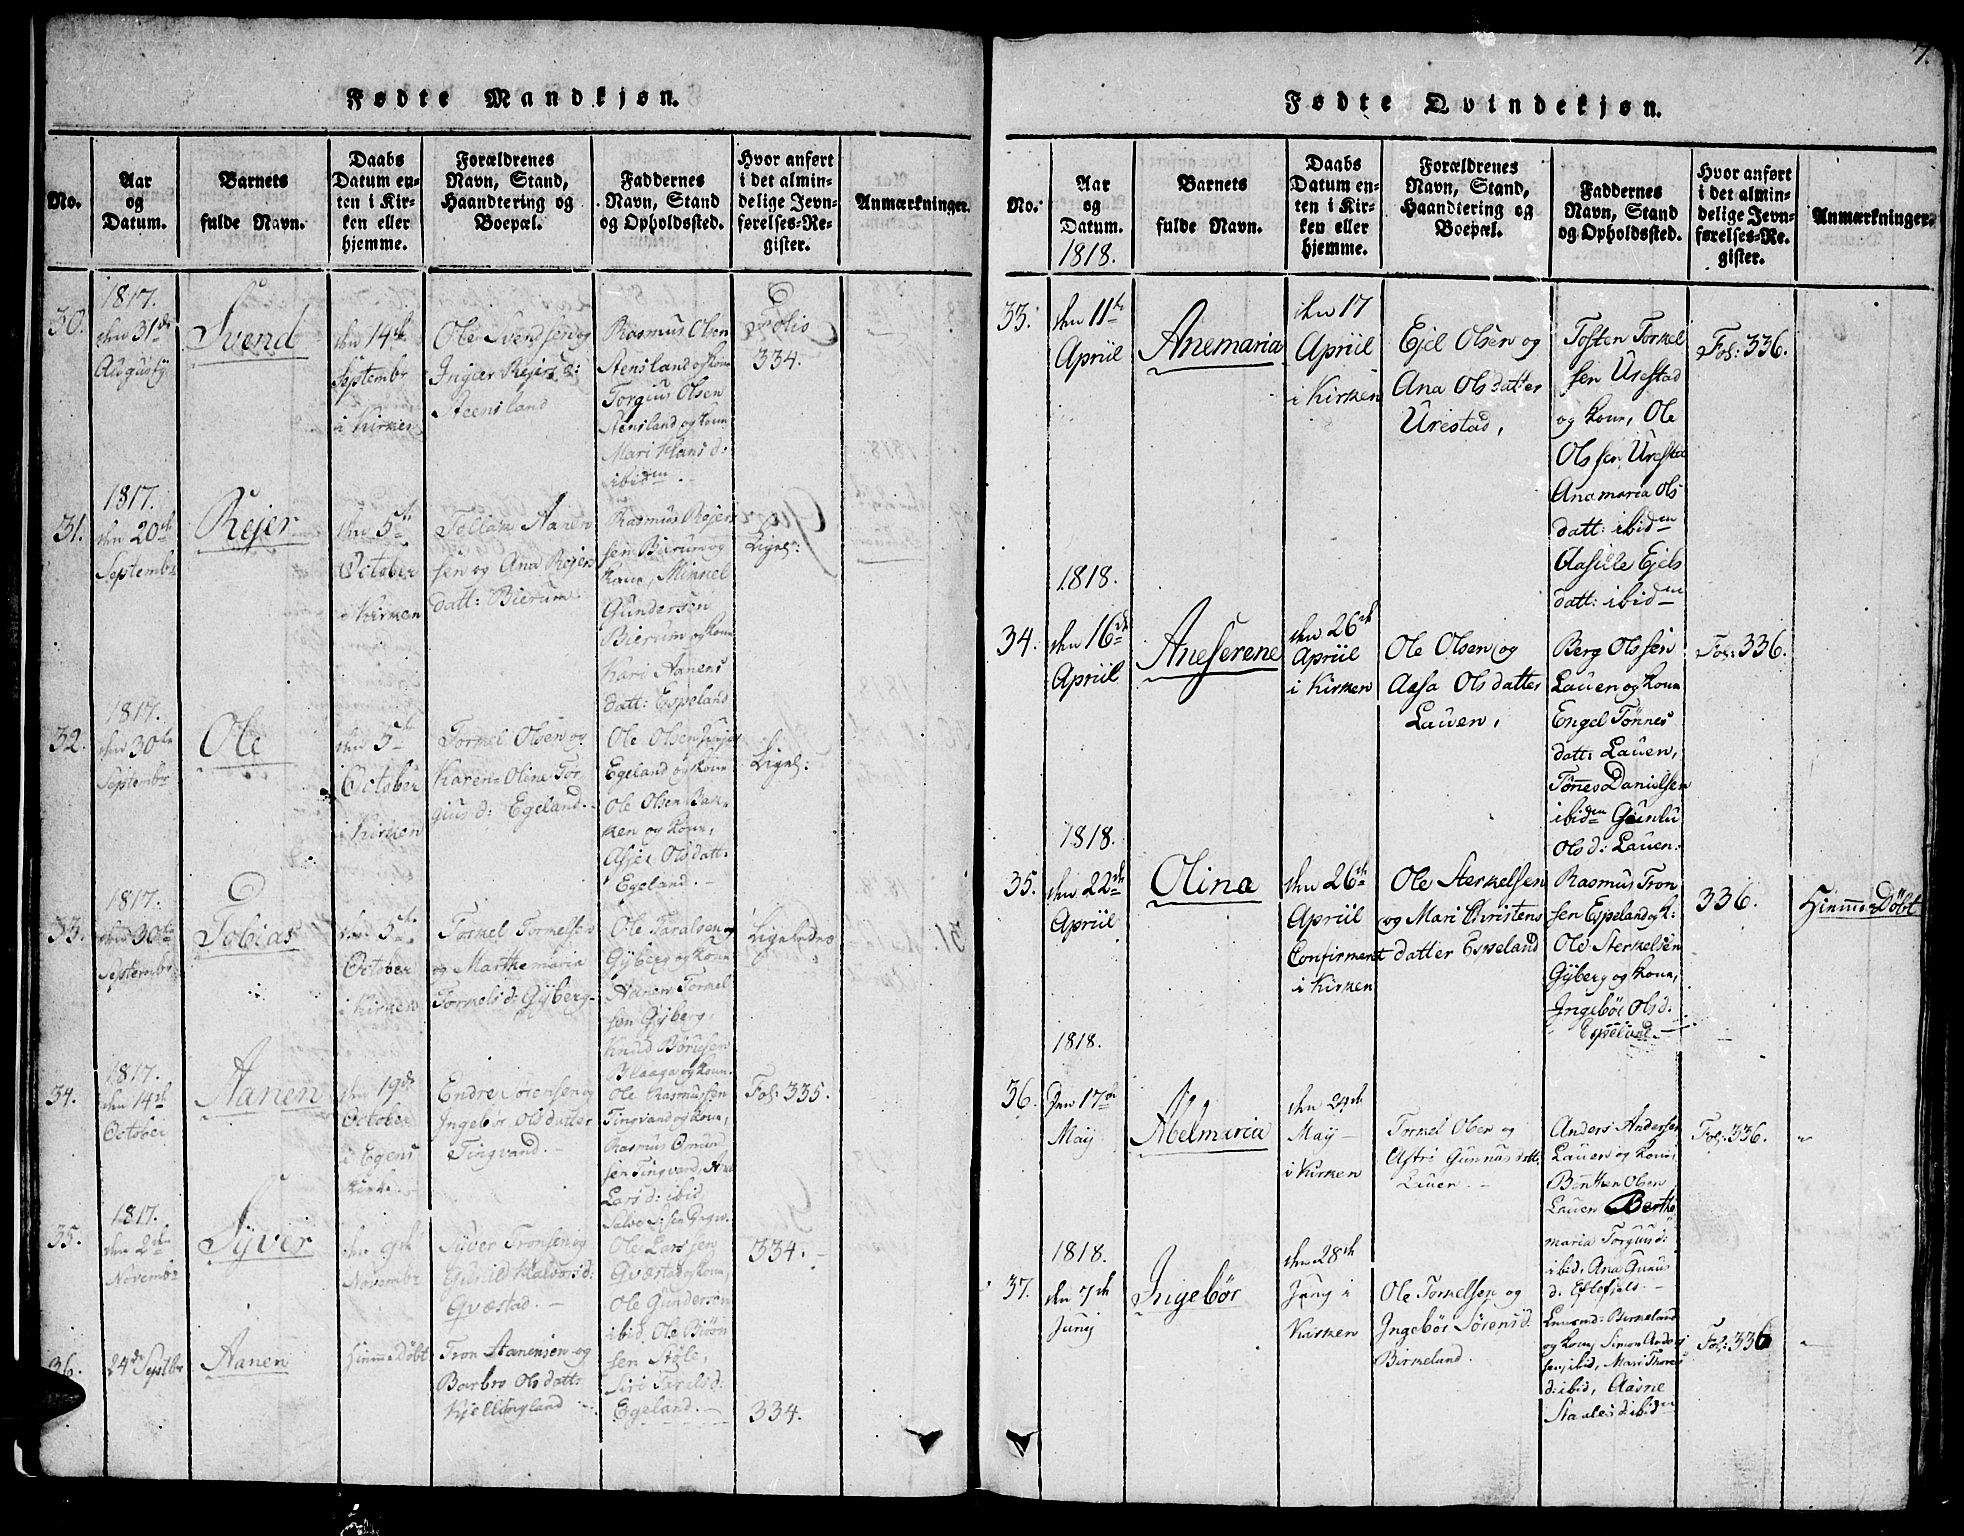 Fødte Mandkjøn.
No.
Aar
og
Datum.
Barnets
fulde Navn.
Daabs
Datum en-
ten i Kir-
ken eller
hjemme.
Forældrenes
Navn, Stand,
Haandtering og
Boepæl.
Faddernes
Navn, Stand
og Opholdssted.
Hvor anført
i det almin-
delige Jevn-
førelses-Re-
gister.
Anmærkninger.
30.
1817.
den 31de
Augustij
Svend
den 14de
Septembr
i Kirken
Ole Svendsen og
Inger Rejersd:
Steensland
Rasmus Olsen
Stensland og Kone
Torgius Olsen
Stensland og Kone
Mari Hansd:
ibiden.
Folio
334.
31.
1817.
den 20de
Septembr
Rejer
den 5te
October
i Kirken
Tellak Aanen
sen og Ana Rejers
datt: Bierum.
Rasmus Rejer
sen Bierum og
Kone, Mikkel
Gundersen
Bierum og Kone
Kari Aanens
datt: Espeland
Ligel:
32.
1817.
den 30te
Septembr
Ole
den 5te
October
i Kirken
Torkel Olsen og
Karen Oline Tor
giusd: Egeland.
Ole Olsen
Egeland og Kone
Ole Olsen Bak-
ken og Kone,
Asjer Olsdatt.
Egeland.
Ligel:
33.
1817.
den 30te
Septembr
Tobias
den 5te
October
i Kirken
Torkel Torkelsen
og Marthe maria
Torkelsd: Gÿberg
Ole Taralsen og
Gÿberg og Kone
Aanen Torkel
sen Gÿberg,
Knud Børuesen
Blaaga og Kone.
Ligeledes
34.
1817.
den 14de
October
Aanen
den 19de
October
i Egens
Kirke.
Endre Sørensen og
Ingebør Olsdatter
Tingvand.
Ole Rasmussen
Tingvand og Kone,
Rasmus Omun
sen Tingvand, Ana
Larsd: ibid,
Fol: 335.
35.
1817.
den 2den
Novembr
Sÿver
den 9de
Novembr
Sÿver Tronsen og
Gunild Halvorsd:
Qvæstad.
Ole Larssen
Qvæstad og Kone,
Ole Gundersen
ibid, Ole Biørn
sen Støle,
Siri Tarelsd:
Egeland.
334.
36.
24de Septbr
Aanen
Himme Døbt
Tron Aanensen og
Barbro Olsdatt:
Kjellingland
334.
Fødte Qvindekjøn.
7.
No.
Aar
og
Datum.
1818.
Barnets
fulde Navn.
Daabs
Datum en-
ten i Kir-
ken eller
hjemme.
Forældrenes
Navn, Stand,
Haandtering og
Boepæl.
Faddernes
Navn, Stand
og Opholdssted.
Hvor anført
i det almin-
delige Jevn-
førelses-Re-
gister.
Anmærkninger.
33.
den 11te
Apriil
Anemaria
den 17
Apriil
i Kirken
Ejel Olsen og
Ana Olsdatter
Urestad,
Tosten Torkel
sen Urestad
og Kone, Ole
Olssen Uresta
Anamaria Ols
datt: ibiden
Aasille Ejels
datt: ibiden
Fol: 336.
34.
1818.
den 16de
Apriil
Aneserene
den 26de
Apriil
i Kirken
Ole Olsen og
Aasa Olsdatter
Lauen,
Berg Olssen
Lauen og Kone
Engel Tønnes
datt: Lauen,
Tønes Danielsen
ibiden Gunlu
Olsd: Lauen.
Fol: 336.
35.
1818.
den 22de
Apriil
Olina
den 26de
Apriil
Confirmert
i Kirken
Ole Sterkelsen
og Mari Christens
datter Espeland
Rasmus Tron
sen Espeland og K:
Ole Sterkelsen
Gÿberg og Kone,
Ingebør Olsd:
Espeland.
336.
Himme Døbt
36.
1818.
den 17de
Maÿ
Abelmaria
den 24de
Maÿ
i Kirken
Torkel Olsen og
Astri Gunnusdatt:
Lauen.
Anders Andersen
Lauen og Kone,
Benthen Olsen
Lauen Berthe
maria Torgiusd:
ibid, Ana Gunus
d: Eftefjeld.
Fol: 336.
37.
1818.
den 7de
Junij
Ingebør
den 28de
Junij i
Kirken
Ole Torkelsen og
Ingebør Sørensd.
Birkeland.
og Kone, Simon Anders
sen ibid, Mari Thores
d: ibid, Aasne
Staalesd: ibiden
Fol: 336